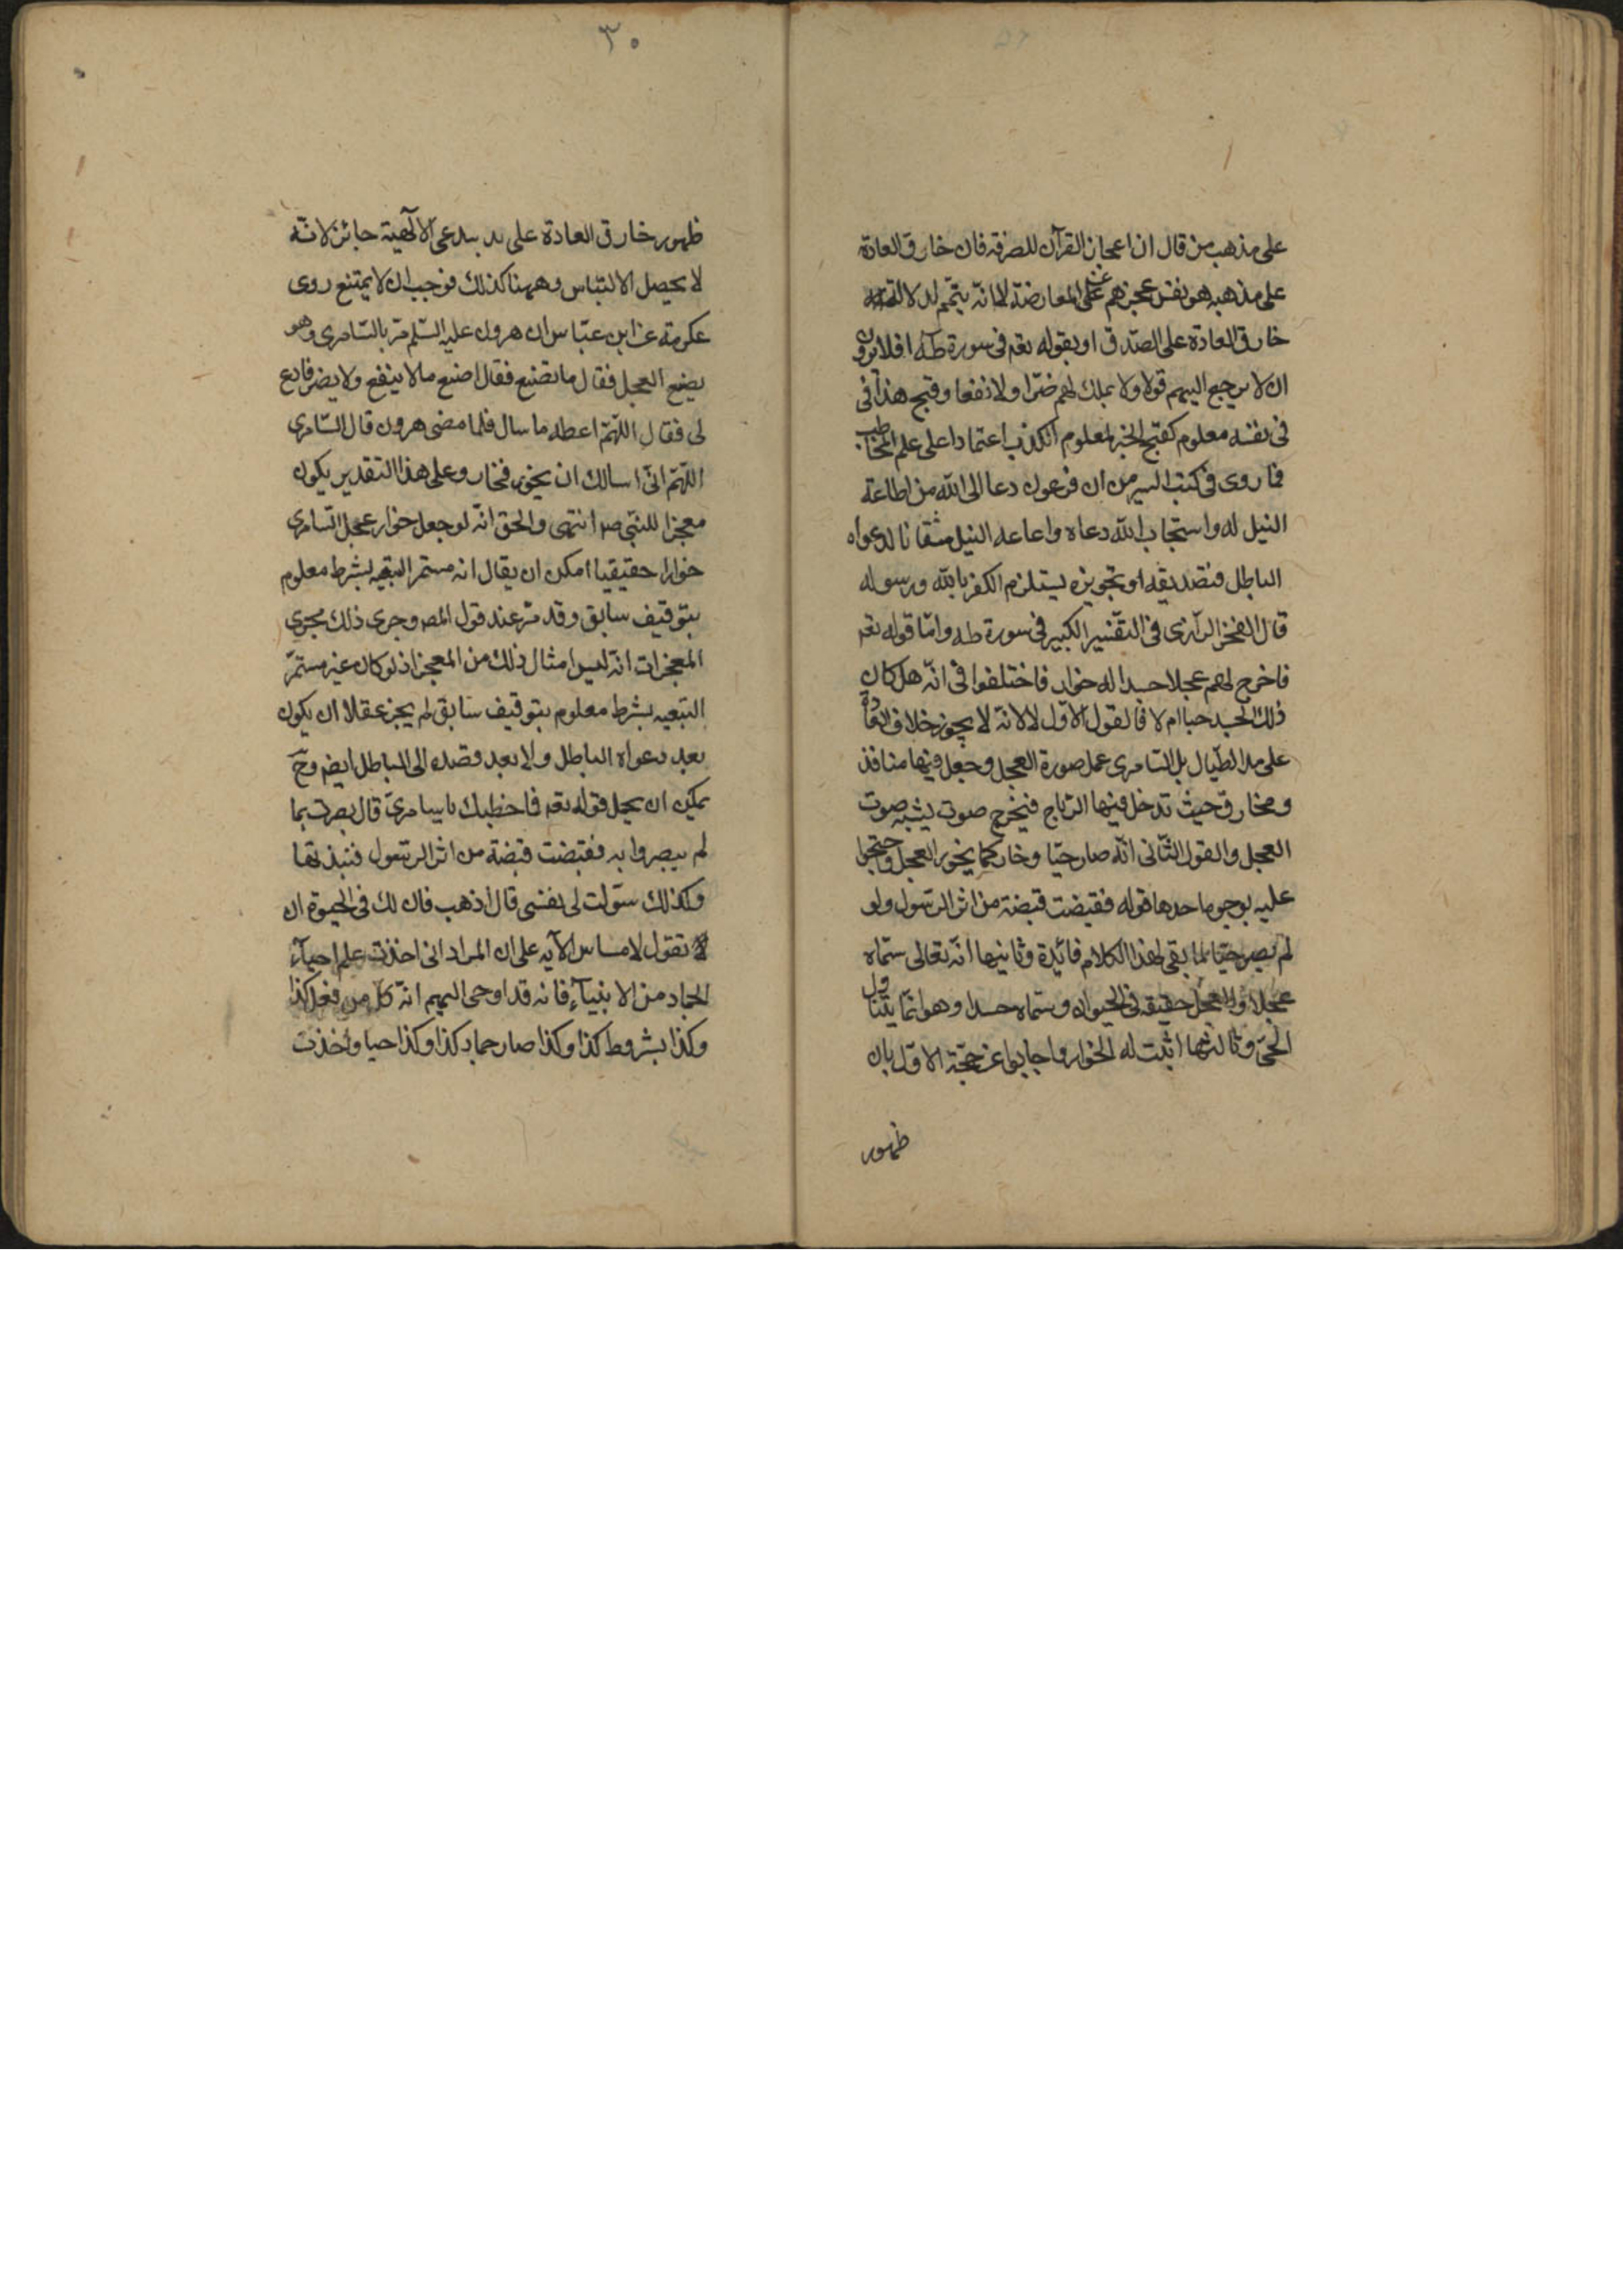 على مذهب من قال ان اعجاز القرآن للصرفة فان خارق العادة
على مذهبه هو نفس عجزهم عن المعارضة لا انه يتمم لدلالة
خارق العادة على الصدق او بقوله تعه فى سورة طه افلا يرون
ان لا يرجع اليهم قولا ولا يملك لهم ضرا ولا نفعا وقبح هذا فى
فى نفسه معلوم كقبح الخبر المعلوم الكذب اعتمادا على علم المخاطب
فما روى فى كتب السير من ان فرعون دعا الى الله من اطاعة
النيل له واستجاب الله دعاه واعاعه النيل لدعواه
الباطل فتصديقه او تجويزه يستلزم الكفر بالله ورسوله
قال الفخر الرازى فى التفسير الكبير فى سورة طه واما قوله تعه
فاخرج لهم عجلا جسدا له خوار فاختلفوا فى انه هل كان
ذلك الجسد حيا ام لا فالقول الاول لا لانه لا يجوز خلاف العادة
على يد الضال بل السامرى عمل صورة العجل وجعل فيها منافذ
ومخارق حيث تدخل فيها الرياح فيخرج صوت يشبه صوت
العجل والقول الثانى انه صار حيا وخار كما يخور العجل واحتجوا
عليه بوجوه احدها قوله فقبضت قبضة من اثر الرسول ولو
لم يصر حيا لما بقى لهذا الكلام فائدة وثانيها انه تعالى سماه
عجلا والعجل حقيقة فى الحيوان وسماه جسدا وهو انما يتناول
الحى وثالثها اثبت له الخوار واجابوا عن حجة الاول بان
ظهور
٣٠
ظهور خارق العادة على يد مدعى الالهية جائز لانه
لا يحصل الالتباس وههنا كذلك فوجب ان لا يمتنع روى
عكرمة عن ابن عباس ان هرون عليه السلم مر بالسامرى وهو
يصنع العجل فقال ما تصنع فقال اصنع ما لا ينفع ولا يضر فادع
لى فقال اللهم اعطه ما سال فلما مضى هرون قال السامرى
اللهم انى اسالك ان يخور فخار وعلى هذا التقدير يكون
معجزا للنبى صم انتهى والحق انه لو جعل خوار عجل السامرى
خوارا حقيقيا امكن ان يقال انه مستمر التبعيه بشرط معلوم
بتوقيف سابق وقد مر عند قول المصه وجرى ذلك مجرى
المعجزات انه ليس امثال ذلك من المعجز اذ لو كان غير مستمر
التبعيه بشرط معلوم بتوقيف سابق لم يجز عقلا ان يكون
بعد دعواه الباطل ولا بعد قصده الى الباطل ايضه وح
يمكن ان يحمل قوله تعه فما خطبك يا سامرى قال بصرت بما
لم يبصروا به فقبضت قبضة من اثر الرسول فنبذتها
وكذلك سولت لى نفسى قال اذهب فان لك فى الحيوة ان
تقول لا مساس الآيه على ان المراد انى اخذت علم احياء
الجماد من الانبياء فانه قد اوحى اليهم انه كل من فعل كذا
وكذا بشروط كذا وكذا صار جماد كذا وكذا حيا واخذت